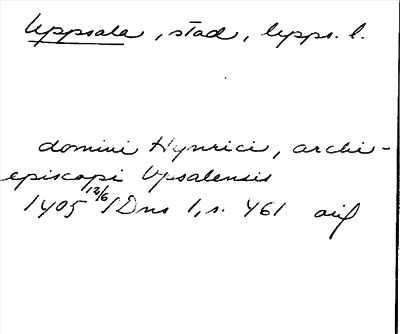 Uppsala, stad, Upps. l.
domini Hynrici, archi-
episcopi Vpsalensis
1405 12/6 /Dns 1, s. 461 aif